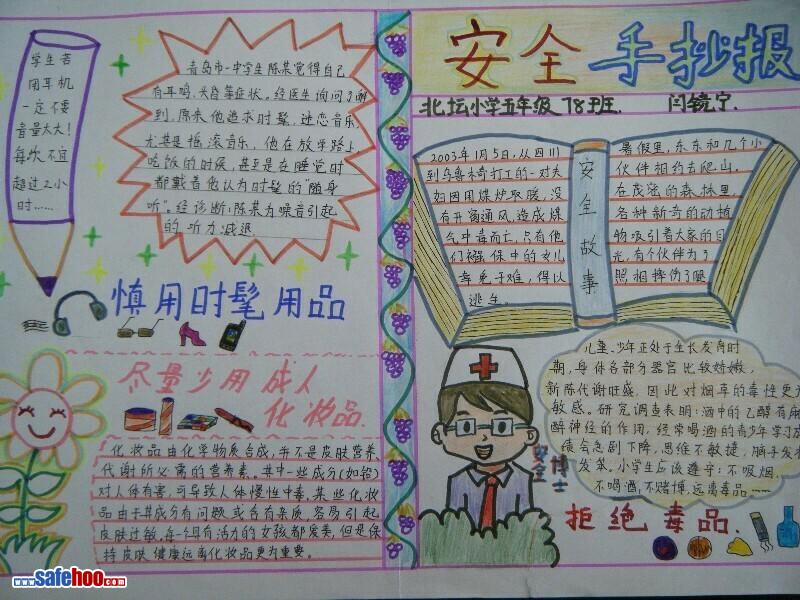 学生若
用耳机
一定不要
音量太大!
每次不宜
超过2小
时……
青岛市一中学生陈某觉得自己
有耳鸣、头昏等症状。经医生询问了解
到,原来他追求时髦,迷恋音乐,
尤其是摇滚音乐,他在放学路上
吃饭的时候,甚至是在睡觉时
都戴着他认为时髦的“随身
听”。经诊断:陈某为噪音引起
的听力减退.
慎用时髦用品
尽量少用成人
化妆品.
化妆品由化学物质合成,并不是皮肤营养
代谢所必需的营养素。其中一些成分(如铅)
对人体有害,可导致人体慢性中毒。某些化妆
品由于其成分有问题或含有杂质,容易引起
皮肤过敏,每一个有活力的女孩都爱美,但是保
持皮肤健康远离化妆品更为重要。
安全手抄报
北坛小学五年级78班. 闫镜宁.
2003年1月5日,从四川
到乌鲁木齐打工的一对夫
妇因用煤炉取暖,没
有开窗通风,造成煤
气中毒而亡,只有他
们襁保中的女儿
幸免于难,得以
逃生。
安全故事
暑假里,东东和几个小
伙伴相约去爬山。
在茂密的森林里,
各种新奇的动植
物吸引着大家的目
光,有个伙伴为了
照相摔伤了腿
儿童、少年正处于生长发育时
期,身体各部分器官比较娇嫩,
新陈代谢旺盛,因此对烟草的毒性更为
敏感。研究调查表明:酒中的乙醇有麻
醉神经的作用,经常喝酒的青少年学习成
绩会急剧下降,思维不敏捷,脑子发
发笨。小学生应该遵守:不吸烟.
不喝酒,不赌博,远离毒品……
安全博士
拒绝毒品
www.safehoo.com